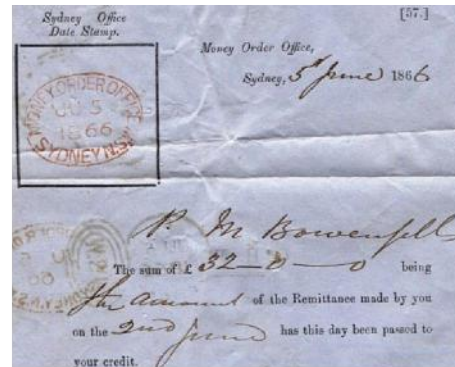 Sydney Office
Date Stamp.
[57.]
Money Order Office,
Sydney, 5th June 1866
MONEY ORDER OFFICE
JU 5
1866
SYDNEY N.S.W
P. M Bowenfells
The sum of £ 32-0-0 being
the amount of the Remittance made by you
on the 2nd June has this day been passed to
your credit.